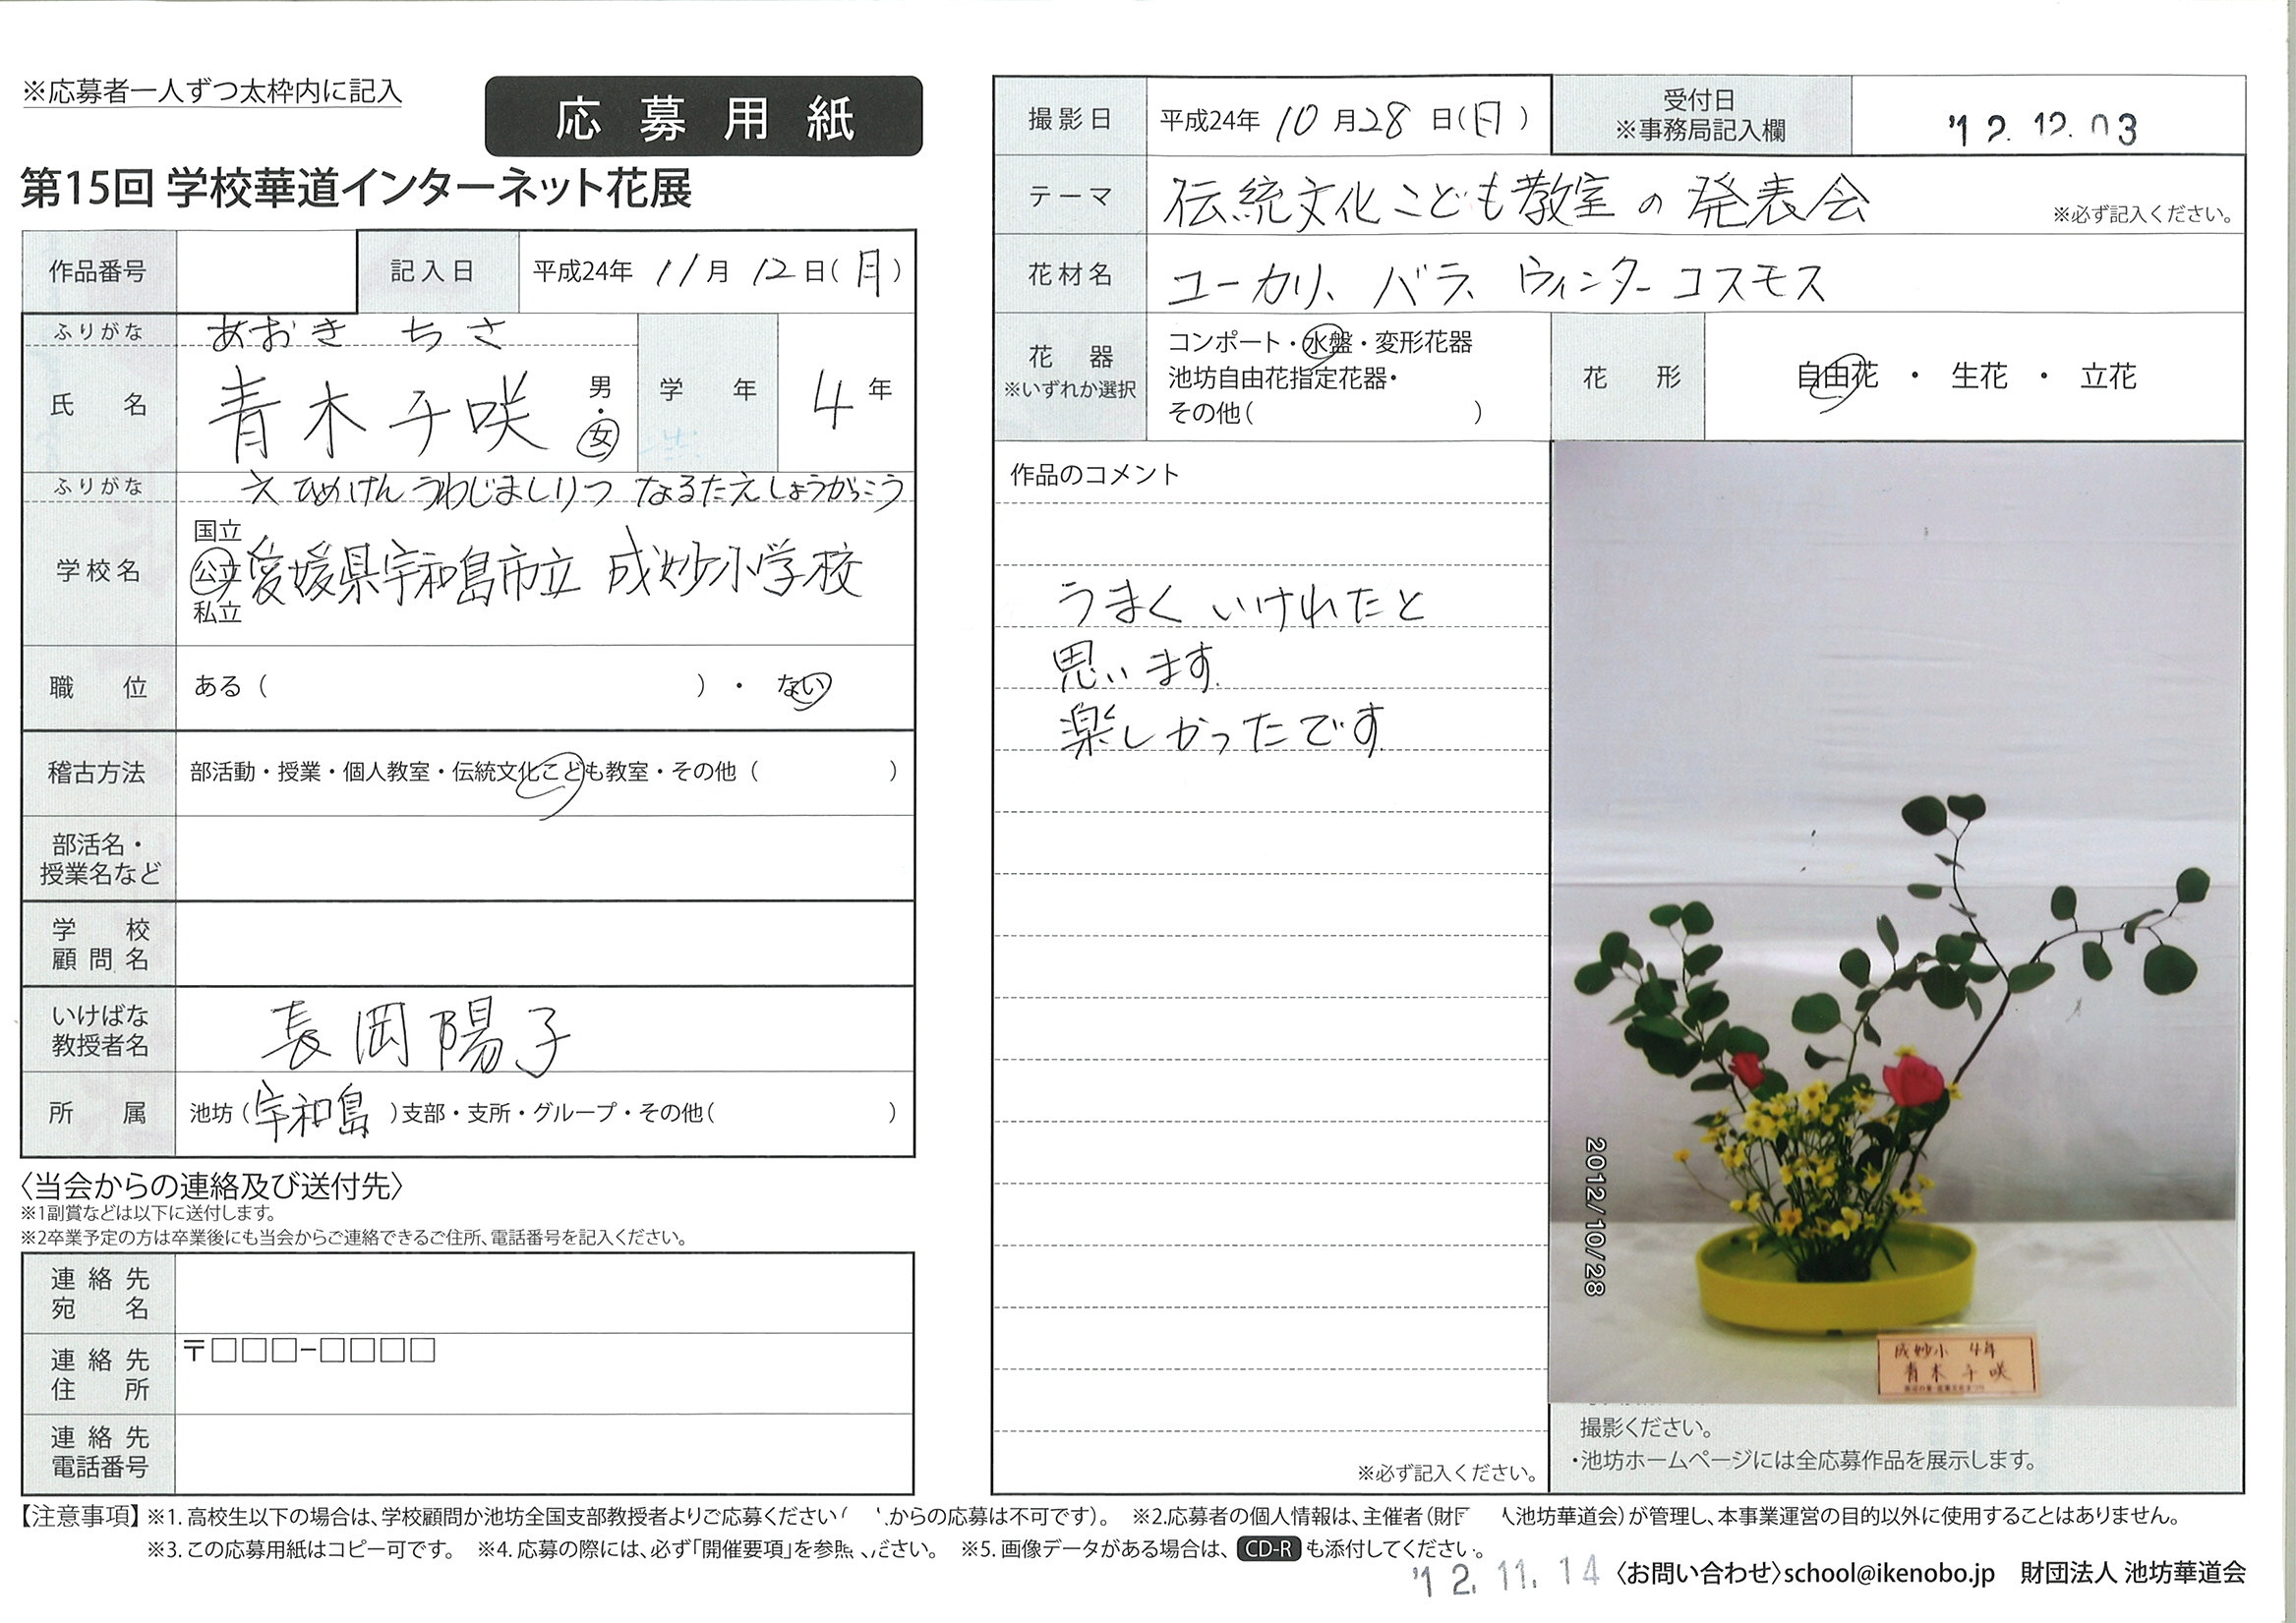 ※応募者一人ずつ太枠内に記入
応募用紙
第15回 学校華道インターネット花展
作品番号
記入日 平成24年 11月 12日(月)
ふりがな あおき ちさ
氏 名 青木千咲 男・女
学 年 4年
ふりがな えひめけんうわじましりつ なるたえしょうがっこう
学校名 国立
公立 愛媛県宇和島市立 成妙小学校
私立
職 位 ある( )・ ない
稽古方法 部活動・授業・個人教室・伝統文化こども教室・その他( )
部活名・
授業名など
学 校
顧問名
いけばな
教授者名 長岡陽子
所 属 池坊(宇和島)支部・支所・グループ・その他( )
〈当会からの連絡及び送付先〉
※1副賞などは以下に送付します。
※2卒業予定の方は卒業後にも当会からご連絡できるご住所、電話番号を記入ください。
連絡先
宛 名
連絡先
住 所
〒□□□-□□□□
連絡先
電話番号
撮影日 平成24年 10月28日(日)
受付日
※事務局記入欄
'12.12.03
テーマ 伝統文化こども教室の発表会 ※必ず記入ください。
花材名 ユーカリ、バラ、ウィンターコスモス
花 器
※いずれか選択
コンポート・水盤・変形花器
池坊自由花指定花器・
その他( )
花 形 自由花 ・ 生花 ・ 立花
作品のコメント
うまくいけれたと
思います。
楽しかったです
※必ず記入ください。
2012/10/28
成妙小 4年
青木千咲
撮影ください。
・池坊ホームページには全応募作品を展示します。
【注意事項】※1. 高校生以下の場合は、学校顧問か池坊全国支部教授者よりご応募ください( からの応募は不可です)。 ※2.応募者の個人情報は、主催者(財団 人池坊華道会)が管理し、本事業運営の目的以外に使用することはありません。
※3. この応募用紙はコピー可です。 ※4. 応募の際には、必ず「開催要項」を参照ください。 ※5. 画像データがある場合は、CD-Rも添付してください。
'12.11.14 〈お問い合わせ〉school@ikenobo.jp 財団法人 池坊華道会